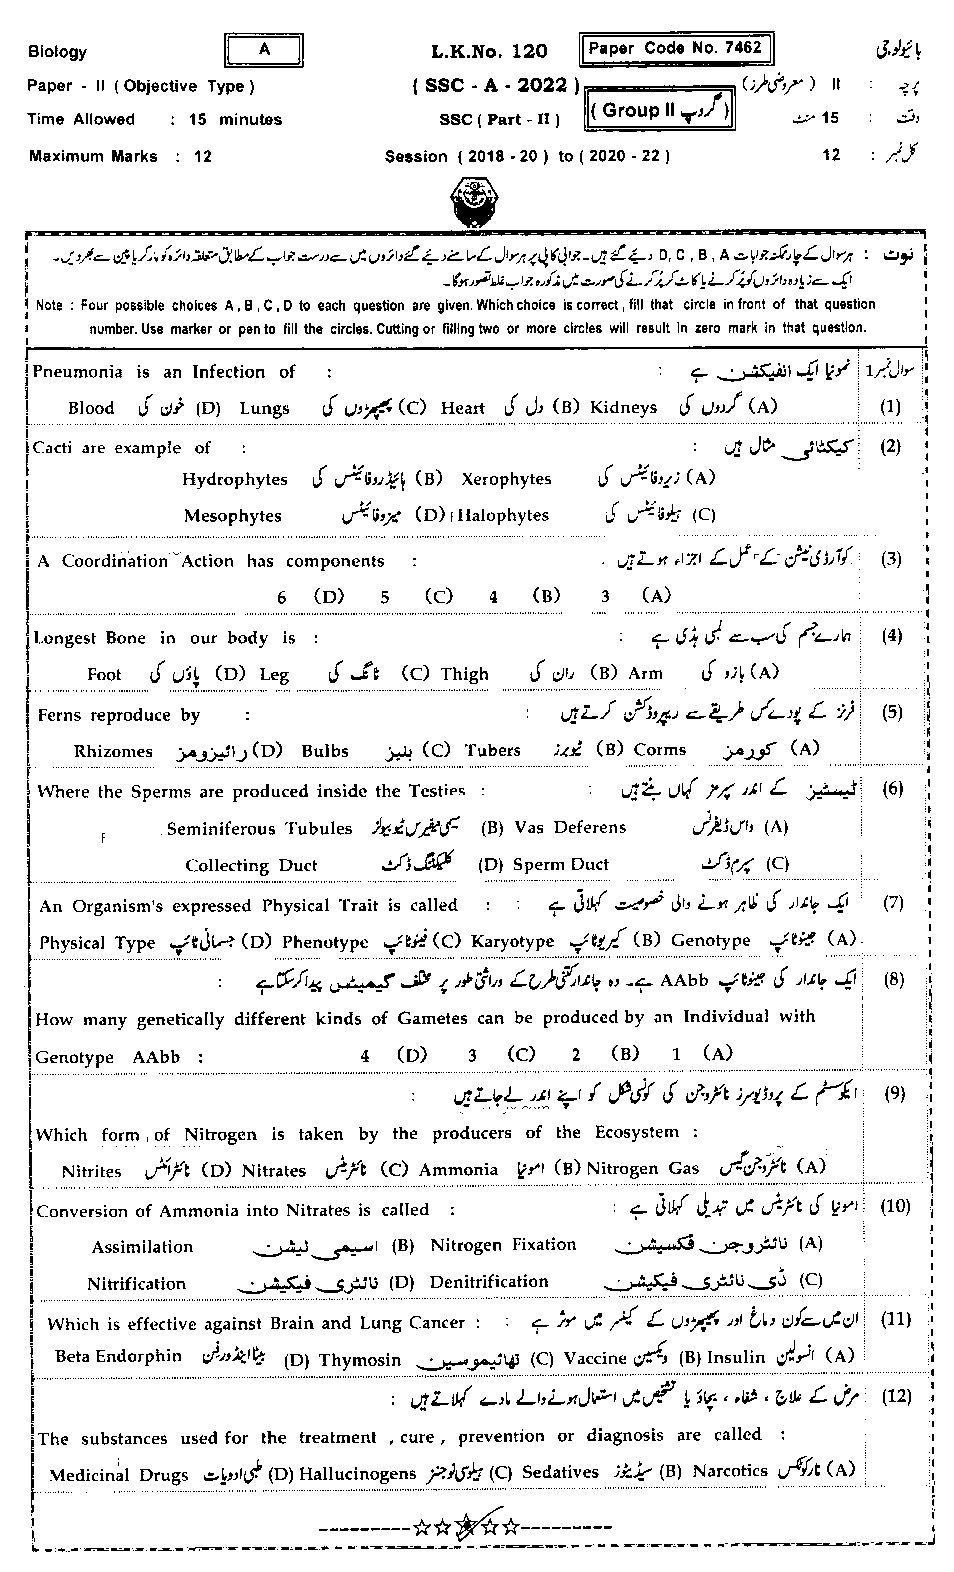 Biology A L.K.No. 120 Paper Code No. 7462 بائیولوجی
Paper - II ( Objective Type ) ( SSC - A - 2022 ) پرچہ : II ( معروضی طرز )
Time Allowed : 15 minutes SSC ( Part - II ) ( Group II گروپ ) وقت : 15 منٹ
Maximum Marks : 12 Session ( 2018 - 20 ) to ( 2020 - 22 ) کل نمبر : 12
نوٹ : ہر سوال کے چار ممکنہ جوابات D , C , B , A دیئے گئے ہیں۔ جوابی کاپی پر ہر سوال کے سامنے دیئے گئے دائروں میں سے درست جواب کے مطابق متعلقہ دائرہ کو مارکر یا پین سے بھر دیں۔
ایک سے زیادہ دائروں کو پُر کرنے یا کاٹ کر پُر کرنے کی صورت میں مذکورہ جواب غلط تصور ہوگا۔
Note : Four possible choices A , B , C , D to each question are given. Which choice is correct , fill that circle in front of that question
number. Use marker or pen to fill the circles. Cutting or filling two or more circles will result in zero mark in that question.
Pneumonia is an Infection of : نمونیا ایک انفیکشن ہے : سوال نمبر 1
Blood خون کی (D) Lungs پھیپھڑوں کی (C) Heart دل کی (B) Kidneys گردوں کی (A) (1)
Cacti are example of : کیکٹائی مثال ہیں : (2)
Hydrophytes ہائیڈروفائیٹس کی (B) Xerophytes زیروفائیٹس کی (A)
Mesophytes میزوفائیٹس (D) Halophytes ہیلوفائیٹس کی (C)
A Coordination Action has components : کوآرڈی نیشن کے عمل کے اجزاء ہوتے ہیں (3)
6 (D) 5 (C) 4 (B) 3 (A)
Longest Bone in our body is : ہمارے جسم کی سب سے لمبی ہڈی ہے : (4)
Foot پاؤں کی (D) Leg ٹانگ کی (C) Thigh ران کی (B) Arm بازو کی (A)
Ferns reproduce by : فرنز کے پودے کس طریقے سے ریپروڈکشن کرتے ہیں : (5)
Rhizomes رائیزومز (D) Bulbs بلبز (C) Tubers ٹیوبرز (B) Corms کورمز (A)
Where the Sperms are produced inside the Testies : ٹیسٹیز کے اندر سپرمز کہاں بنتے ہیں : (6)
Seminiferous Tubules سیمی نیفرس ٹیوبیولز (B) Vas Deferens واس ڈیفرنس (A)
Collecting Duct کلیکٹنگ ڈکٹ (D) Sperm Duct سپرم ڈکٹ (C)
An Organism's expressed Physical Trait is called : ایک جاندار کی ظاہر ہونے والی خصوصیت کہلاتی ہے : (7)
Physical Type جسمانی ٹائپ (D) Phenotype فینوٹائپ (C) Karyotype کیریوٹائپ (B) Genotype جینوٹائپ (A)
ایک جاندار کی جینوٹائپ AAbb ہے۔ وہ جاندار کتنی طرح کے وراثتی طور پر مختلف گیمیٹس پیدا کرسکتا ہے : (8)
How many genetically different kinds of Gametes can be produced by an Individual with
Genotype AAbb : 4 (D) 3 (C) 2 (B) 1 (A)
ایکوسسٹم کے پروڈیوسرز نائٹروجن کی کونسی شکل کو اپنے اندر لے جاتے ہیں : (9)
Which form of Nitrogen is taken by the producers of the Ecosystem :
Nitrites نائٹرائٹس (D) Nitrates نائٹریٹس (C) Ammonia امونیا (B) Nitrogen Gas نائٹروجن گیس (A)
Conversion of Ammonia into Nitrates is called : امونیا کی نائٹریٹس میں تبدیلی کہلاتی ہے : (10)
Assimilation اسیمی لیشن (B) Nitrogen Fixation نائٹروجن فکسیشن (A)
Nitrification نائٹری فیکیشن (D) Denitrification ڈی نائٹری فیکیشن (C)
Which is effective against Brain and Lung Cancer : ان میں سے کون دماغ اور پھیپھڑوں کے کینسر میں موثر ہے : (11)
Beta Endorphin بیٹا اینڈورفن (D) Thymosin تھائیموسین (C) Vaccine ویکسین (B) Insulin انسولین (A)
مرض کے علاج ، شفاء ، بچاؤ یا تشخیص میں استعمال ہونے والے مادے کہلاتے ہیں : (12)
The substances used for the treatment , cure , prevention or diagnosis are called :
Medicinal Drugs طبی ادویات (D) Hallucinogens ہیلوسی نوجنز (C) Sedatives سیڈیٹوز (B) Narcotics نارکوٹکس (A)